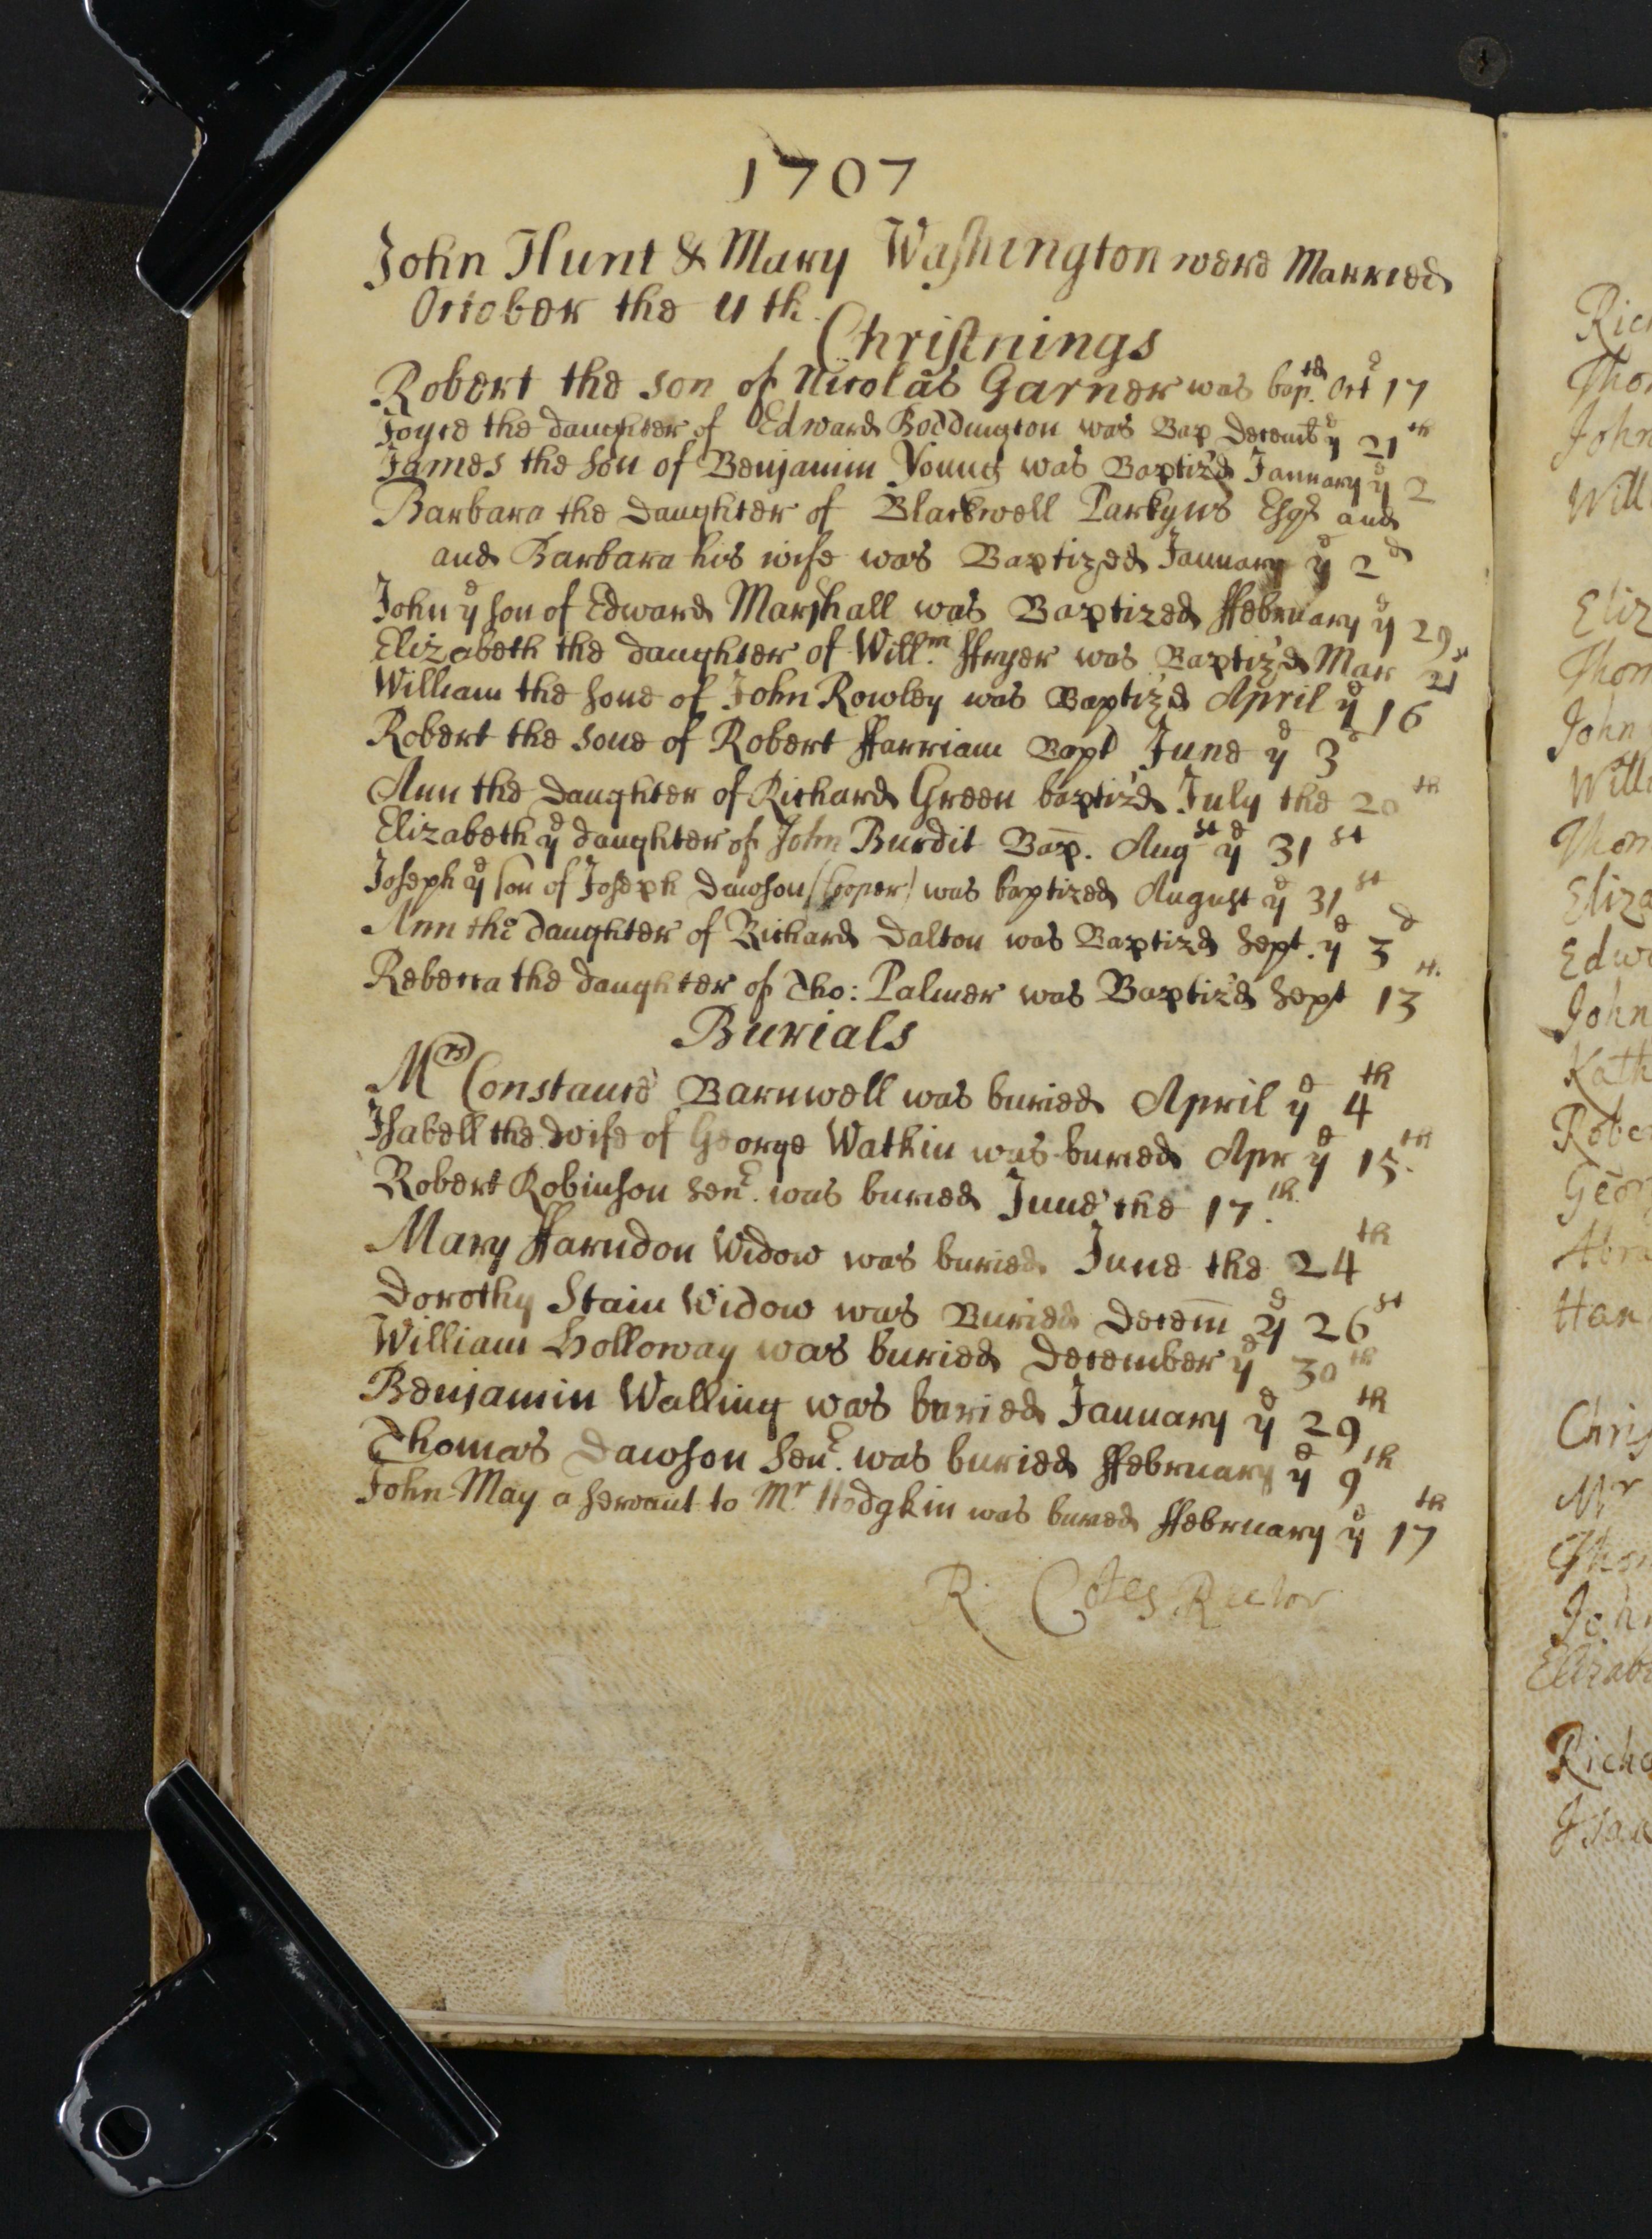 1707
John Hunt & Mary Washington were Married
October the 11th.
Christnings
Robert the son of Nicolas Garner was bap.td Octr 17
Joyce the daughter of Edward Boddington was Bap Decemb ye 21th
James the son of Benjamin Young was Baptiz'd January ye 2
Barbara the Daughter of Blackwell Parkyns Esqr and
and Barbara his wife was Baptized January ye 2d
John ye son of Edward Marshall was Baptized ffebruary ye 29
Elizabeth the daughter of Will.m ffryer was Baptiz'd Mar 21st
William the sone of John Rowley was Baptiz'd April ye 16
Robert the sone of Robert ffarriam Bapt June ye 3d
Ann the Daughter of Richard Green baptiz'd July the 20th
Elizabeth ye daughter of John Burdit Bap. Augst ye 31st
Joseph ye son of Joseph Dawson (Cooper) was baptized August ye 31st
Ann the daughter of Richard Dalton was Baptizd Sept. ye 3d
Rebecca the daughter of Tho: Palmer was Baptiz'd Sept 13th
Burials
Mrs Constance Barnwell was buried April ye 4th
Isabell the wife of George Watkin was buried Apr ye 15.th
Robert Robinson Senr. was buried June the 17.th
Mary ffarndon Widow was buried June the 24th
Dorothy Stain Widow was Buried Decem ye 26st
William Holloway was buried December ye 30th
Benjamin Walling was buried January ye 29th
Thomas Dawson Senr. was buried ffebruary ye 9th
John May a servant to Mr. Hodgkin was buried ffebruary ye 17th
R. Cotes Rector
Thom
John
Will
Eliz
Thom
John
Will
Thom
Eliza
Edw
John
Kath
Geor
Chris
Mr
John
Elizab